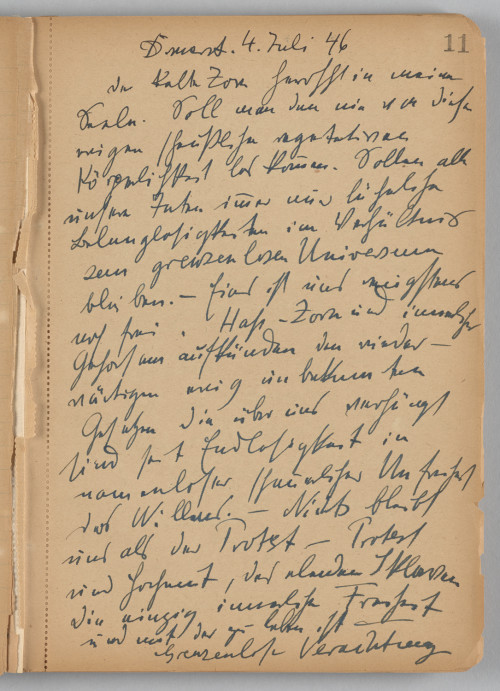 Donnerst. 4. Juli 46
11
der kalte Zorn herrscht in meiner
Seele. Soll man denn nie von dieser
ewigen scheußlichen vegetativen
Körperlichkeit los kommen. Sollen alle
unsere Taten immer nur lächerliche
Belanglosigkeiten im Verhältnis
zum grenzenlosen Universum
bleiben. – Eins ist uns wenigstens
noch frei. Hass – Zorn und innerlicher
Gehorsam aufkünden den nieder–
trächtigen ewig unbekannten
Gesetzen die über uns verhängt
sind seit Endlosigkeit in
namenloser schauerlicher Unfreiheit
des Willens. – Nichts bleibt
uns als der Protest – Protest
und Hochmut, des elenden Sklaven
die einzig innerliche Freiheit
und mit der zu leben ist –
Grenzenlose Verachtung